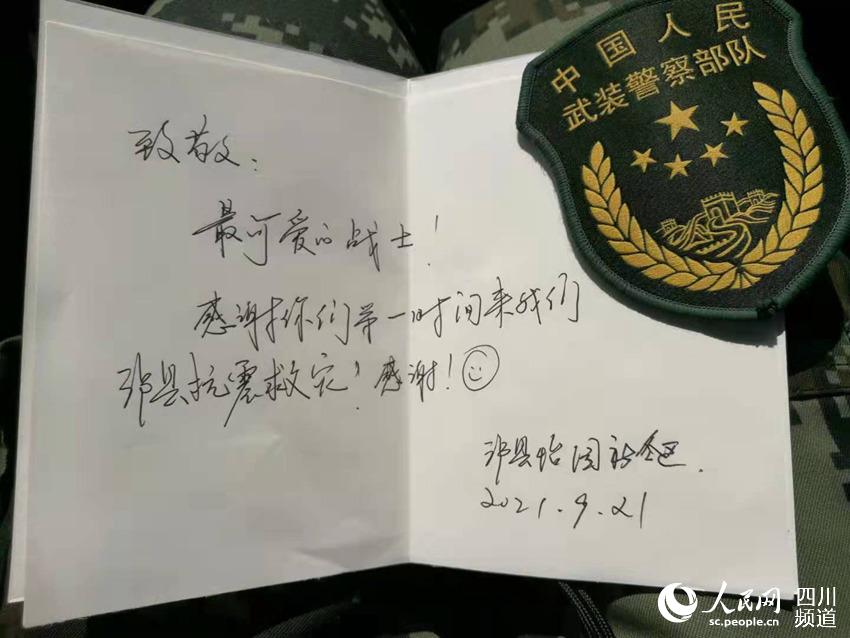 中国人民
武装警察部队
致敬：
最可爱的战士！
感谢你们第一时间来我们
泸县抗震救灾！感谢！
泸县怡园社区.
2021.9.21
人民网 四川频道
sc.people.cn